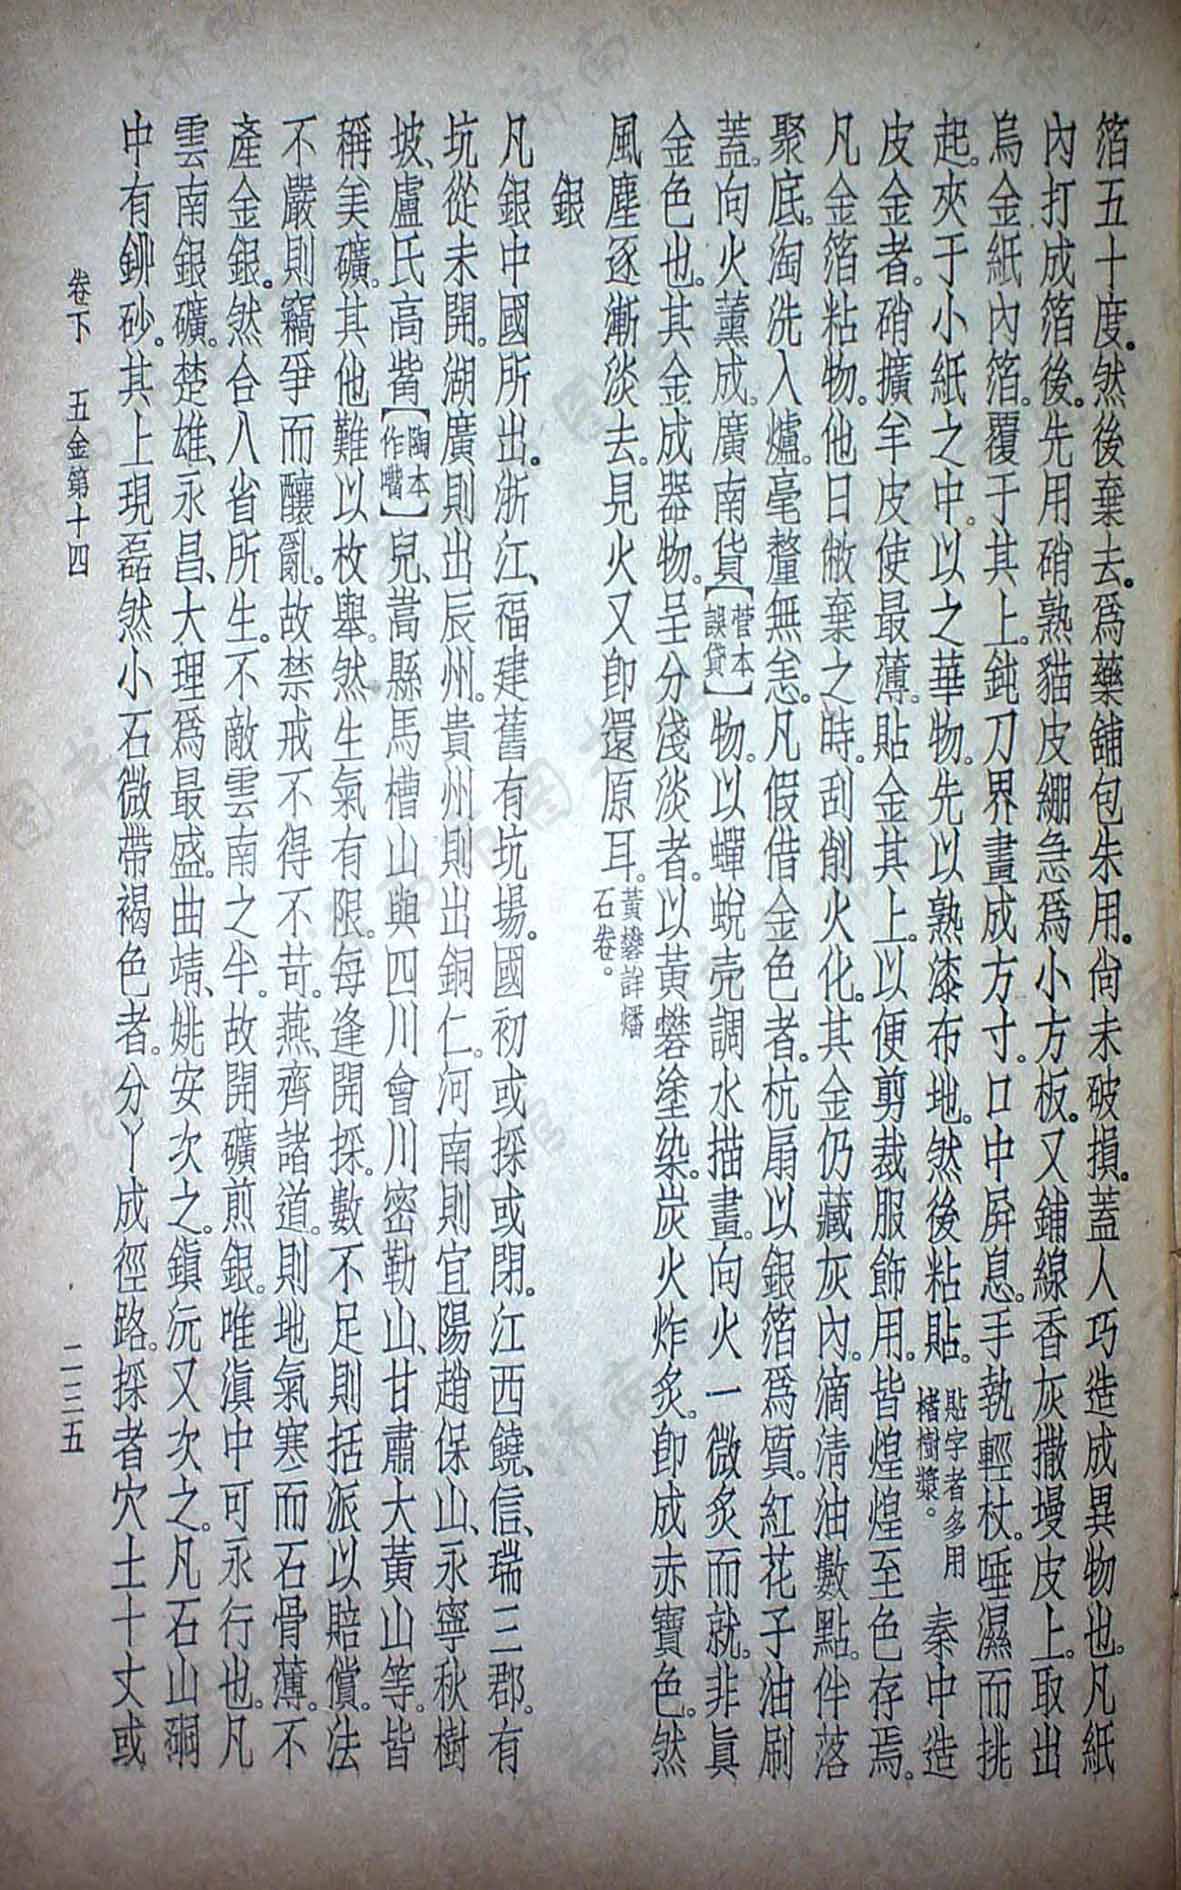 箔五十度。然後棄去。爲藥舖包朱用。尙未破損。蓋人巧造成異物也。凡紙
內打成箔後。先用硝熟貓皮綳急爲小方板。又鋪線香灰撒墁皮上。取出
烏金紙內箔。覆于其上。鈍刀界畫成方寸。口中屛息。手執輕杖。唾濕而挑
起。夾于小紙之中。以之華物。先以熟漆布地。然後粘貼。貼字者多用楮樹漿。秦中造
皮金者。硝擴羊皮使最薄。貼金其上。以便剪裁服飾用。皆煌煌至色存焉。
凡金箔粘物。他日敝棄之時。刮削火化。其金仍藏灰內。滴淸油數點。件落
聚底。淘洗入爐。毫釐無恙。凡假借金色者。杭扇以銀箔爲質。紅花子油刷
蓋。向火薰成。廣南貨【菅本誤貸】物。以蟬蛻壳調水描畫。向火一微炙而就。非眞
金色也。其金成器物。呈分淺淡者。以黃礬塗染。炭火炸炙。卽成赤寶色。然
風塵逐漸淡去。見火又卽還原耳。黃礬詳燔石卷。
銀
凡銀中國所出。浙江、福建舊有坑場。國初或採或閉。江西饒、信、瑞三郡。有
坑從未開。湖廣則出辰州。貴州則出銅仁。河南則宜陽趙保山、永寧秋樹
坡、盧氏高嵳【陶本作嘴】兒、嵩縣馬槽山與四川會川密勒山、甘肅大黃山等。皆
稱美礦。其他難以枚舉。然生氣有限。每逢開採。數不足則括派以賠償。法
不嚴則竊爭而釀亂。故禁戒不得不苛。燕、齊諸道。則地氣寒而石骨薄。不
產金銀。然合八省所生。不敵雲南之半。故開礦煎銀。唯滇中可永行也。凡
雲南銀礦。楚雄、永昌、大理爲最盛。曲靖、姚安次之。鎭沅又次之。凡石山硐
中有鉚砂。其上現磊然小石微帶褐色者。分丫成徑路。採者穴土十丈或
卷下　五金第十四　二三五